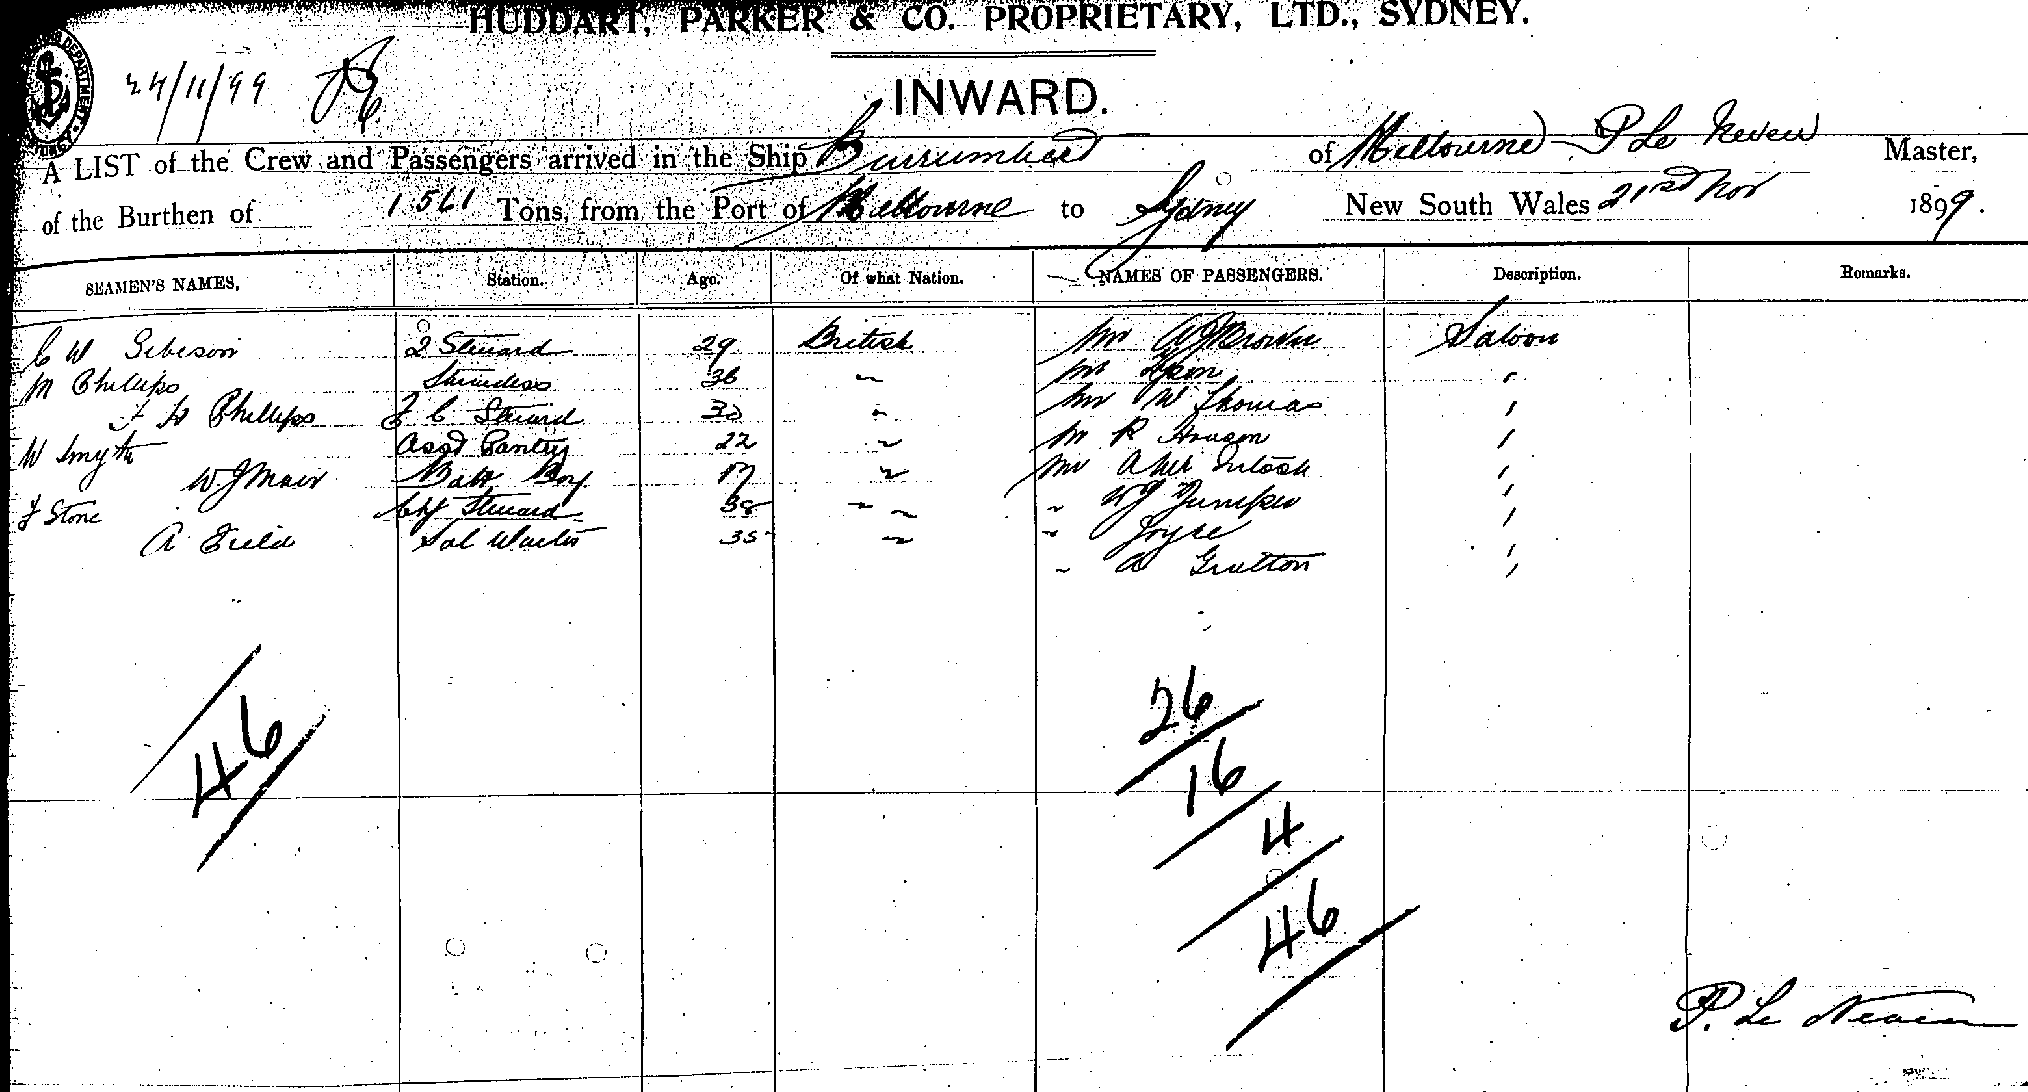 HUDDART, PARKER & CO. PROPRIETARY, LTD., SYDNEY.
24/11/99
INWARD.
A LIST of the Crew and Passengers arrived in the Ship Burrumbeet of Melbourne P Le Neveu Master,
of the Burthen of 1561 Tons, from the Port of Melbourne to Sydney New South Wales 21st Nov 1899.
SEAMEN'S NAMES. Station. Age. Of what Nation. NAMES OF PASSENGERS. Description. Remarks.
C W Sibeson 2 Steward 29 British Mr Brown Saloon
M Phillips Stewardess 36 " Mr "
F H Phillips F C Steward 30 " Mr W Thomas "
W Smyth Asst Pantry 22 " Mr R "
W J Mair Boy 17 " Mr A McIntosh "
F Stone Chf Steward 38 " " W J Juniper "
A Field Sal Waiter 35 " " Joyce "
" A Gratton "
46
26
16
4
46
P. Le Neveu